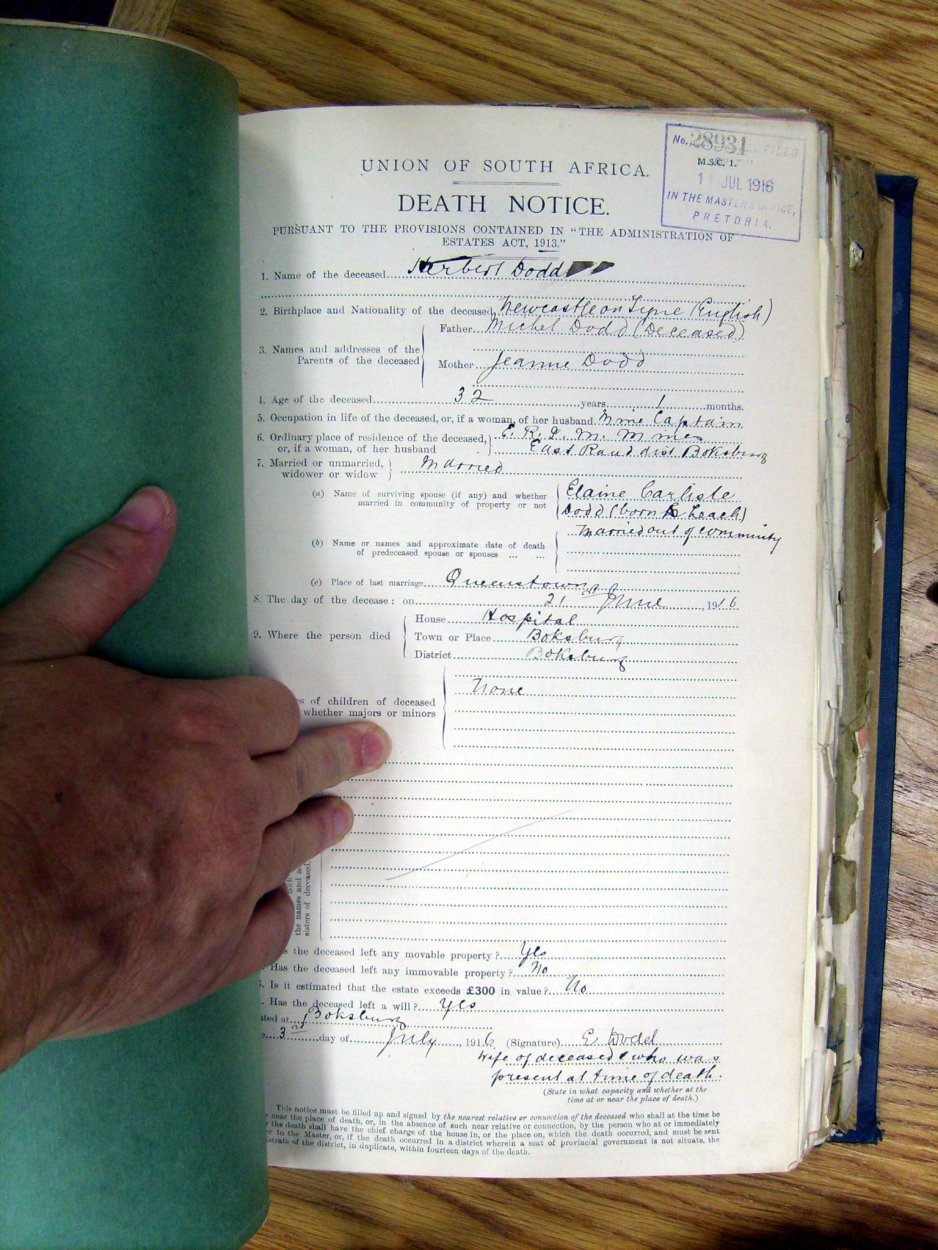 No. 28931 FILED
M.S.C. 1.
JUL 1916
IN THE MASTER'S OFFICE,
PRETORIA.
UNION OF SOUTH AFRICA.
DEATH NOTICE.
PURSUANT TO THE PROVISIONS CONTAINED IN "THE ADMINISTRATION OF
ESTATES ACT, 1913."
1. Name of the deceased Herbert Dodd
2. Birthplace and Nationality of the deceased, Newcastle on Tyne (English)
3. Names and addresses of the Father Michel Dodd (Deceased)
Parents of the deceased Mother Jeanne Dodd
4. Age of the deceased 32 years 1 months.
5. Occupation in life of the deceased, or, if a woman, of her husband Mine Captain
6. Ordinary place of residence of the deceased, E. R. P. M. Mines
or, if a woman, of her husband East Rand dist. Boksburg
7. Married or unmarried, Married
widower or widow
(a) Name of surviving spouse (if any) and whether Elaine Carlisle
married in community of property or not Dodd (born Leach)
married out of community
(b) Name or names and approximate date of death
of predeceased spouse or spouses ... ...
(c) Place of last marriage Queenstown
8. The day of the decease: on 21st June, 1916
9. Where the person died House Hospital
Town or Place Boksburg
District Boksburg
s of children of deceased None
whether majors or minors
the names and
sisters of deceased.
s the deceased left any movable property? Yes
Has the deceased left any immovable property? No
. Is it estimated that the estate exceeds £300 in value? No
. Has the deceased left a will? Yes
ated at Boksburg
3 day of July, 1916 (Signature) E Dodd
Wife of deceased & who was
present at time of death.
(State in what capacity and whether at the
time at or near the place of death.)
This notice must be filled up and signed by the nearest relative or connection of the deceased who shall at the time be
r near the place of death, or, in the absence of such near relative or connection, by the person who at or immediately
r the death shall have the chief charge of the house in, or the place on, which the death occurred, and must be sent
er to the Master, or, if the death occurred in a district wherein a seat of provincial government is not situate, the
istrate of the district, in duplicate, within fourteen days of the death.